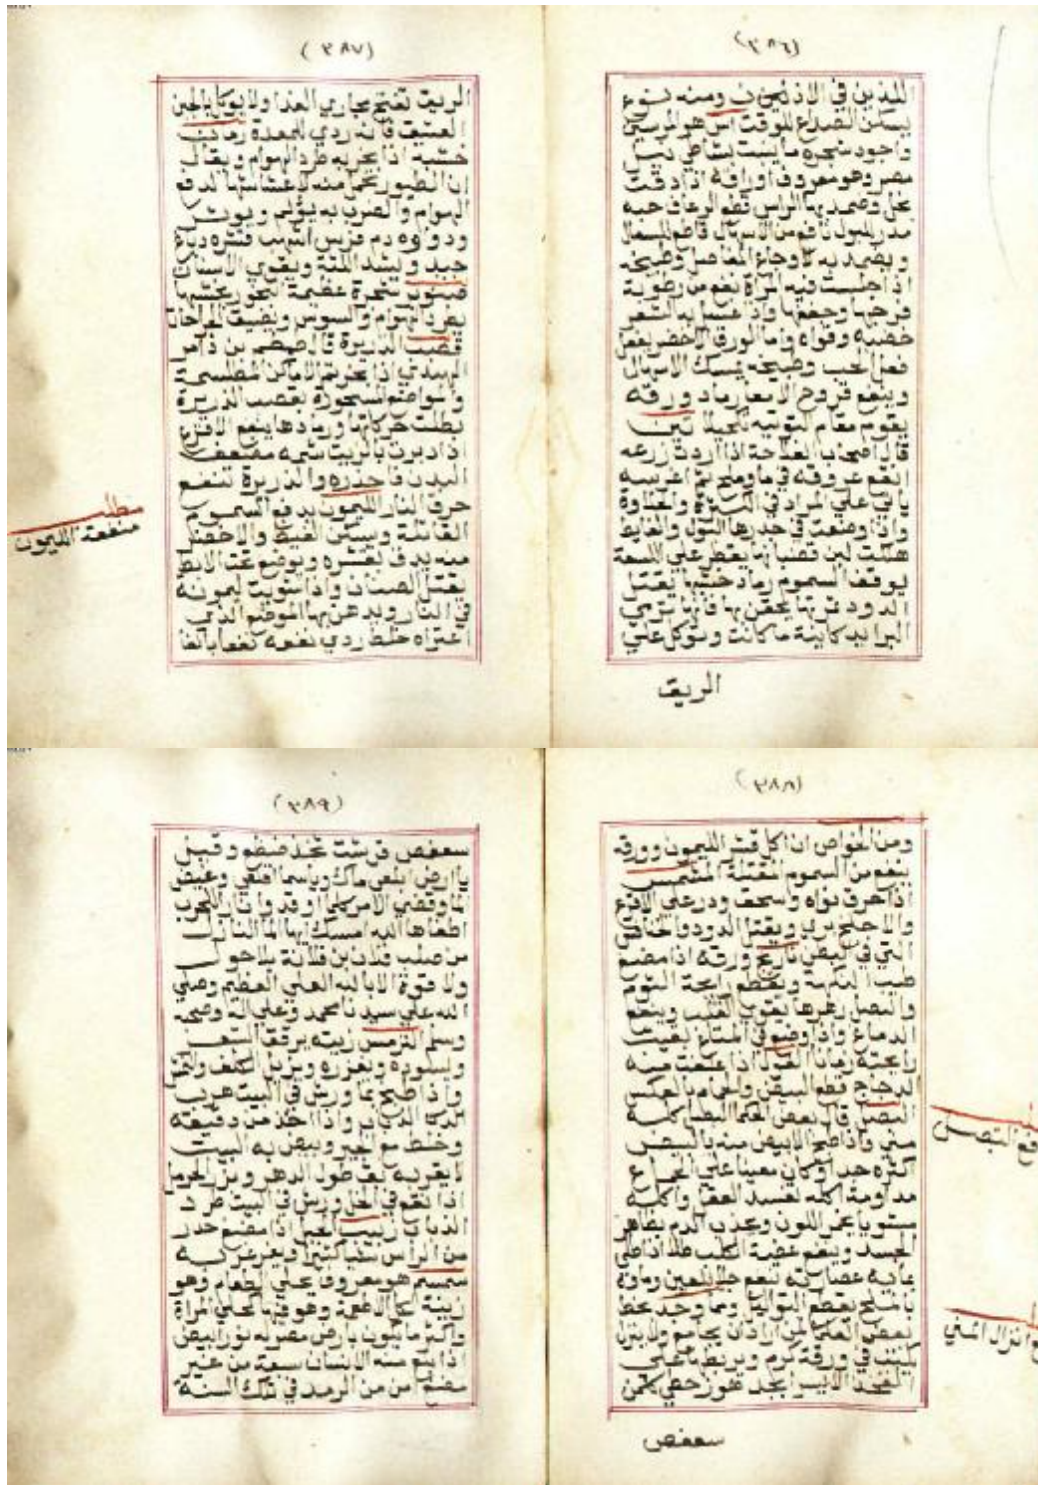 (٣٨٦)
اللذين في الاذنين ومنه نوع
يسكن الصداع للوقت اس هو المرسين
واجود شجره ما ينبت بشاطي نيل
مصر وهو معروف اوراقه اذا دقت
بخل وضمد بها الراس قطع الرعاف حبه
مدر للبول نافع من الاسهال قاطع للسعال
ويضمد به لاوجاع المفاصل وطبيخه
اذا جلست فيه المراة نفع من رطوبة
فرجها ووجعها واذا غسل به الشعر
خضبه وقواه واما الورق الاخضر يفعل
فعل الحب وطبيخه يمسك الاسهال
وينفع قروح الامعا رماد ورقه
يقوم مقام التوتيه تكحيلا تين
قال اصحاب الفلاحة اذا اردت زرعه
انقع عروقه في ما وملح ثم اغرسه
ياتي علي المراد في الكبر والحلاوة
واذا وضعت في جذرها البول والغايط
هكلت لبن قضبانها يقطر علي اللسعة
يوقف السموم رماد خشبها يقتل
الدود
البرا بيد كاينة ما كانت وتوكل علي
الريق
(٣٨٧)
الريق تفتح مجاري الغذا ولا يوكل بالجبن
العتيق فانه ردي للمعدة رمان
خشبه اذا بخر به طرد الهوام ويقال
ان الطيور تجعل منه لاعشاشها لدفع
الهوام والضرب به يؤلم ويوثر
ودواوه دم فريس التهاب قشره دباغ
جيد ويشد اللثة ويقوي الاسنان
صنوبر شجرة عظيمة البخور بخشبها
يطرد الهوام والسوس ويضيق الجراحات
قصب الذريرة قال صكصه بن ذاهر
الهندي اذا بخرتم الاماكن المطلسمة
والمواضع المسحورة بقصب الذريرة
بطلت حركاتها ورمادها ينفع الاقرع
اذا دبرت بالزيت شربه مضعف
البدن جذره والذريرة تنفع
حرق النار الليمون يدفع السموم
القاتلة ويسكن الغيظ والاخضر
منه يدق بقشره ويوضع تحت الابط
يقتل الصنان واذا شويت ليمونة
في النار ويدهن بها الموضع الذي
اعتراه خلط ردي نفعه نفعا بالغا
مطلب
منفعة الليمون
(٣٨٨)
ومن الخواص ان اكل قشر الليمون وورقه
ينفع من السموم القتالة المشمش
اذا حرق نواه وسحق وذر علي الاقرع
والاجلح برئ ويقتل الدود والخنافس
التي في البطن نارنج ورقه اذا مضغ
طيب النكهة ويقطع رايحة الثوم
والبصل زهرها يقوي القلب وينفع
الدماغ واذا وضع في المتاع بقيت
رايحته زمانا الفول اذا علفت منه
الدجاج قطع البيض والحمام بالعكس
البصل قال بعض الحكما البصل كله
مني واذا طبخ الابيض منه بالبيض
اكثره جدا وكان معينا علي الجماع
مداومة اكله تفسد العقل واكله
مشويا يحمر اللون ويجذب الدم بظاهر
الجسد وينفع عضة الكلب طلا اذا طلي
بمائه عصارته تنفع جلا للعين وماؤه
بالملح يقطع التواليل ومما وجد بخط
بعض العلما لمن اراد ان يجامع ولا ينزل
يكتب في ورقة كرم ويربطها علي
الفخذ الايسر ابجد هوز حطي كلمن
سعفص
فع البصل
ع انزال المني
(٣٨٩)
سعفص قرشت تخذ ضظغ وقيل
يا ارض ابلعي ماءك ويا سما اقلعي وغيض
الما وقضي الامر كلما اوقدوا نارا للحرب
اطفاها الله امسك ايها الما النازل
من صلب فلان بن فلانة بلا حول
ولا قوة الا بالله العلي العظيم وصلي
الله علي سيدنا محمد وعلي اله وصحبه
وسلم الترمس زيته يرقق الشعر
ويسوده ويغزره ويزيل الكلف والنمش
واذا طبخ بما ورش في البيت هرب
الدكا الذباب واذا اخذ من دقيقه
وخلط مع الجير وبيض به البيت
لا يقربه بق طول الدهر وبزر الحرمل
اذا نقع في الخل ورش في البيت طرد
الذباب زبيب الجبل اذا مضغ حدر
من الراس شيا كثيرا ويغرغر به
سمسم هو معروف يحلي الطعام وهو
زينة كل الاطعمة وهو فيها كحلي المراة
واكثر ما يكون بارض مصر له نور ابيض
اذا بلع منه الانسان سبعة من غير
مضغ امن من الرمد في تلك السنة